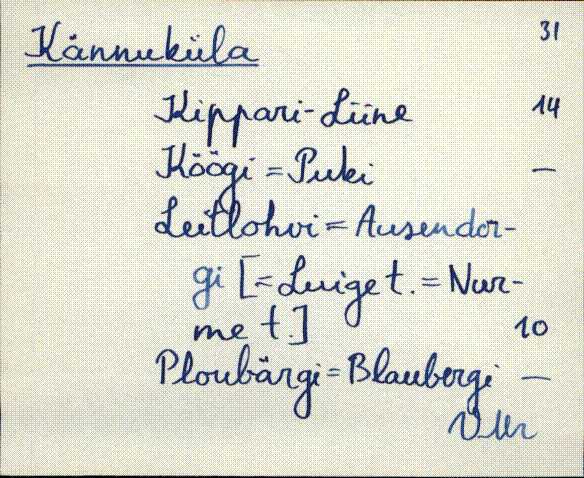 Kännuküla 31
Kippari-Liine 14
Köögi = Puki —
Leitlohvi = Ausendor-
gi [= Luige t. = Nur-
me t.] 10
Ploubärgi = Blaubergi —